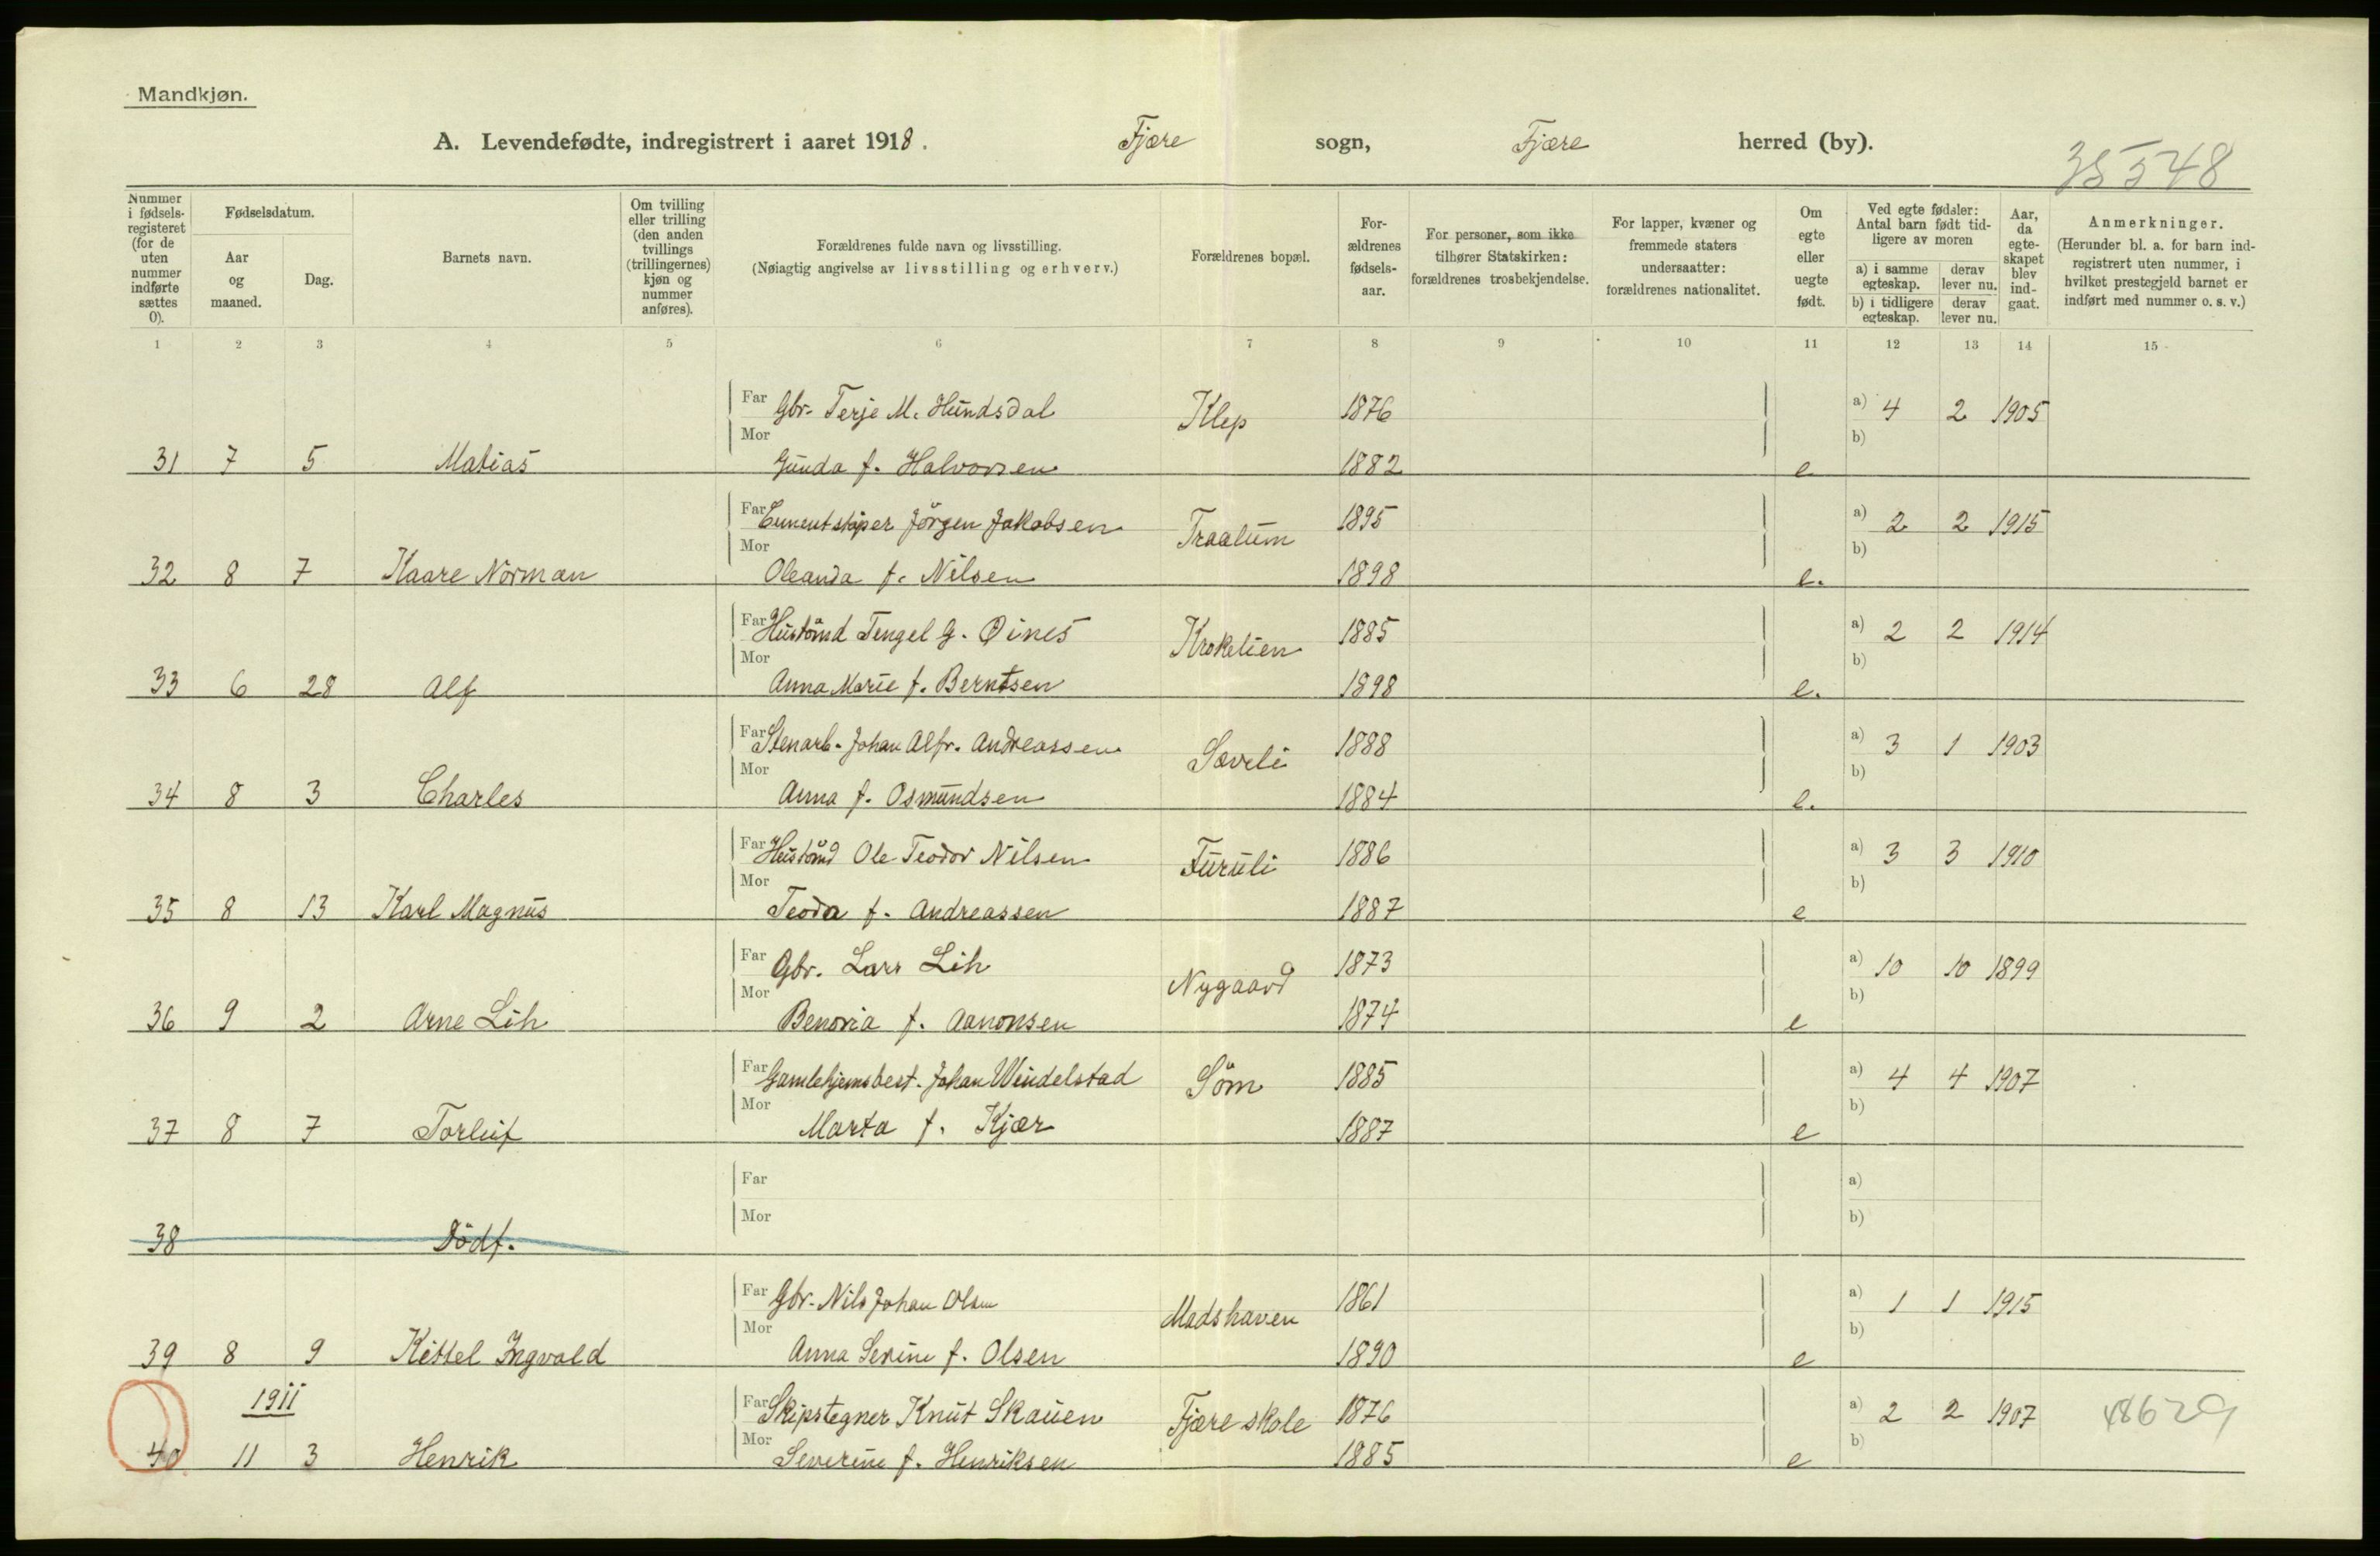 Mandkjøn.
A. Levendefødte, indregistrert i aaret 1918. Fjære sogn, Fjære herred (by).
35548
Nummer i fødsels-registeret (for de uten nummer indførte sættes 0).
Fødselsdatum.
Aar og maaned.
Dag.
Barnets navn.
Om tvilling eller trilling (den anden tvillings (trillingernes) kjøn og nummer anføres).
Forældrenes fulde navn og livsstilling.
(Nøiagtig angivelse av livsstilling og erhverv.)
Forældrenes bopæl.
For-ældrenes fødsels-aar.
For personer, som ikke tilhører Statskirken: forældrenes trosbekjendelse.
For lapper, kvæner og fremmede staters undersaatter: forældrenes nationalitet.
Om egte eller uegte født.
Ved egte fødsler: Antal barn født tid-ligere av moren
a) i samme egteskap. derav lever nu.
b) i tidligere egteskap. derav lever nu.
Aar, da egte-skapet blev ind-gaat.
Anmerkninger.
(Herunder bl. a. for barn ind-registrert uten nummer, i hvilket prestegjeld barnet er indført med nummer o. s. v.)
1 2 3 4 5 6 7 8 9 10 11 12 13 14 15
Far Gbr. Terje M. Hundsdal Klep 1876 a) 4 2 1905
Mor b)
31 7 5 Matias Gunda f. Halvorsen 1882 e
Far Cementstøper Jörgen Jakobsen Traalum 1895 a) 2 2 1915
Mor b)
32 8 7 Kaare Norman Oleanda f. Nilsen 1898 e.
Far Tengel G. Øines Krokelien 1885 a) 2 2 1914
Mor b)
33 6 28 Alf Anna Marie f. Berntsen 1898 e.
Far Stenarb. Johan Alfr. Andreassen Sævli 1888 a) 3 1 1903
Mor b)
34 8 3 Charles Anna f. Osmundsen 1884 e.
Far Ole Teodor Nilsen Furuli 1886 a) 3 3 1910
Mor b)
35 8 13 Karl Magnus Teoda f. Andreassen 1887 e
Far Gbr. Lars Lih Nygaard 1873 a) 10 10 1899
Mor b)
36 9 2 Arne Lih Benovia f. Aanonsen 1874 e
Far Gamlehjemsbest. Johan Windelstad Söm 1885 a) 4 4 1907
Mor b)
37 8 7 Torleif Marta f. Kjær 1887 e
Far a)
Mor b)
38 Dödf.
Far Gbr. Nils Johan Olsen Madshaven 1861 a) 1 1 1915
Mor b)
39 8 9 Kittel Ingvald Anna Serine f. Olsen 1890 e
1911
Far Skipstegner Knut Skauen Fjære skole 1876 a) 2 2 1907 48629
Mor b)
40 11 3 Henrik Severine f. Henriksen 1885 e